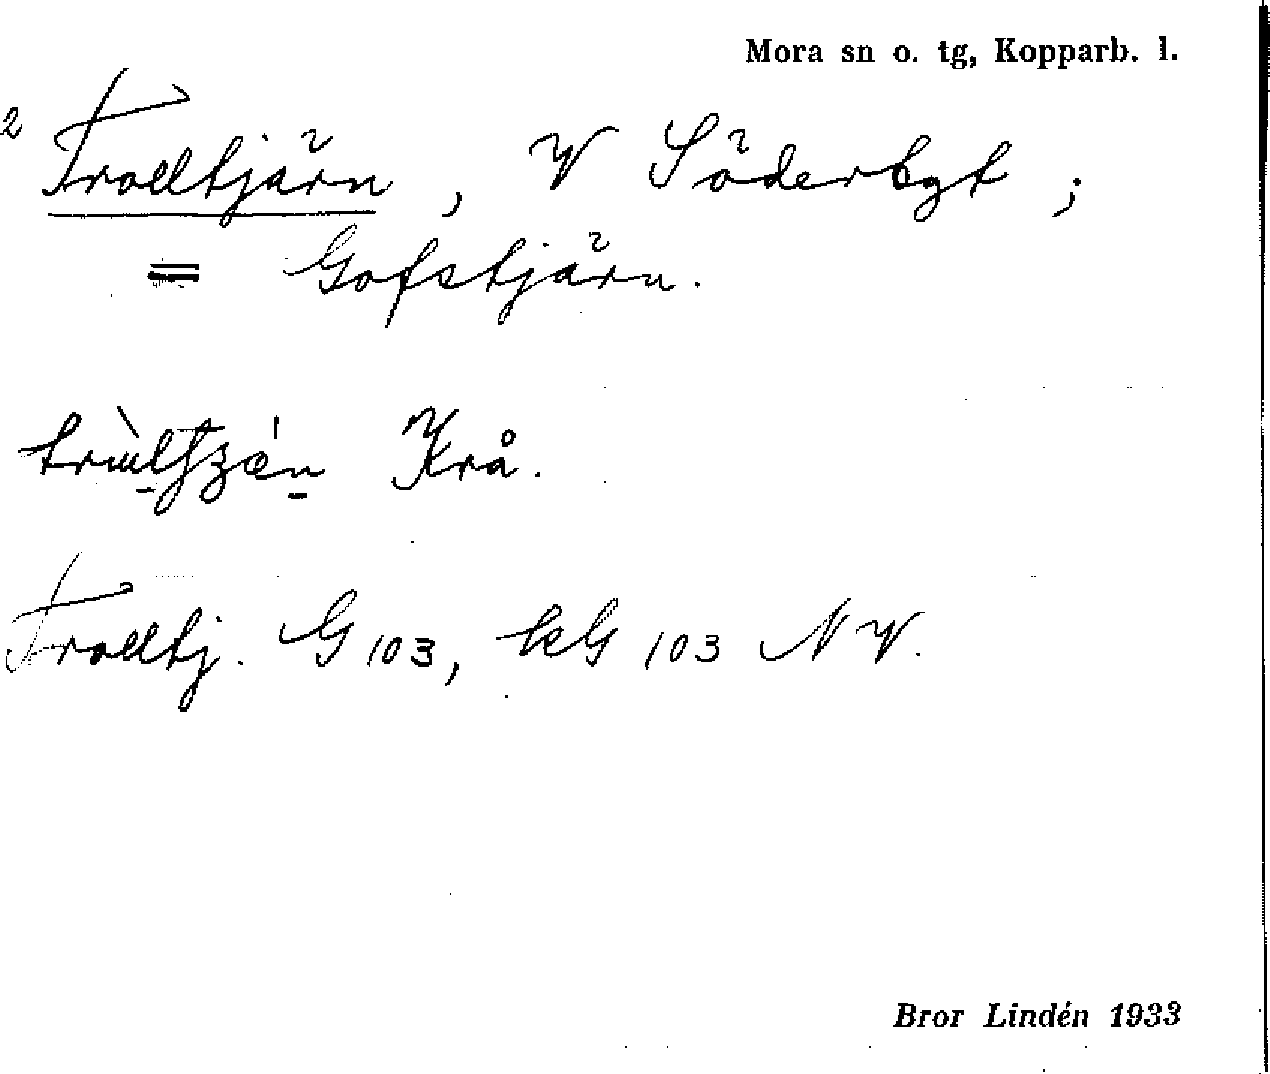 Mora sn o. tg, Kopparb. l.
2 Trolltjärn, V Söderbgt;
= Gofstjärn.
Krå.
Trolltj. G 103, kG 103 NV.
Bror Lindén 1933